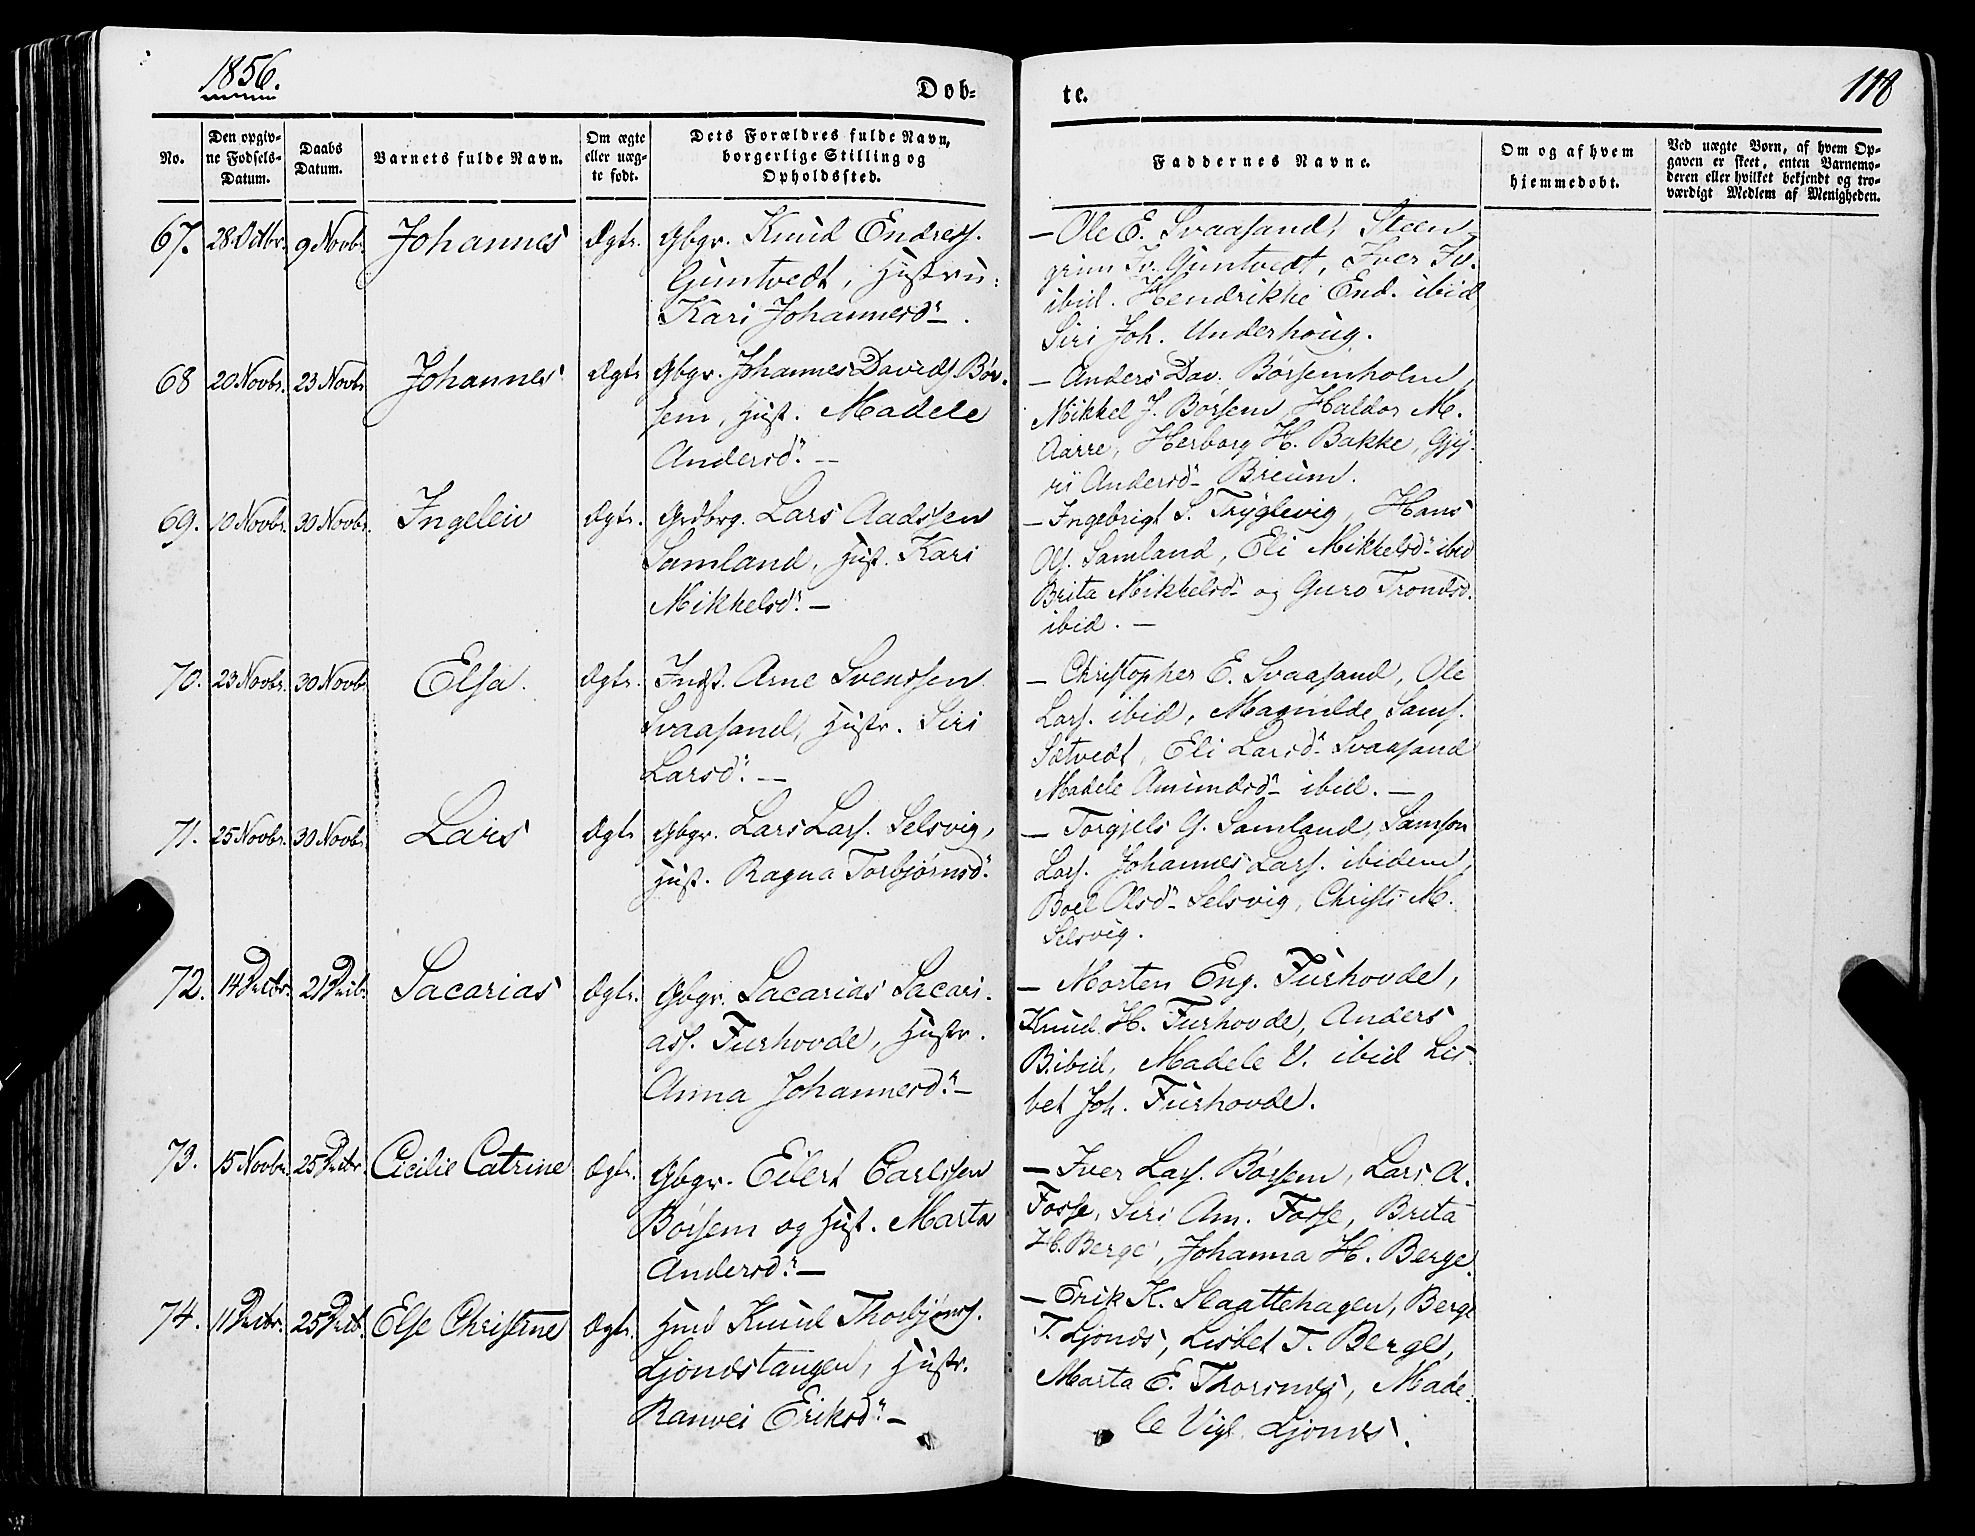 1856.
Dob=
te.
118
No.
Den opgiv-
ne Fødsels-
Datum.
Daabs
Datum.
Barnets fulde Navn.
Om ægte
eller uæg-
te født.
Dets Forældres fulde Navn,
borgerlige Stilling og
Opholdssted.
Faddernes Navne.
Om og af hvem
hjemmedøbt.
Ved uægte Børn, af hvem Op-
gaven er skeet, enten Barnemo-
deren eller hvilket bekjendt og tro-
værdigt Medlem af Menigheden.
67. 28 Octbr. 9 Novb. Johannes Ægte. Gbgr. Knud Endress.
Guntvedt, Hustru:
Kari Johannesd.
– Ole E. Svaasand, Steen-
grim Iv. Guntvedt, Iver Iv.
ibid. Hendrikke End. ibid,
Siri Joh. Underhoug.
68 20 Novbr. 23 Novbr Johannes Ægte Gbgr. Johannes Davids. Bør-
sem, Hust. Madele
Andersd. –
– Anders Dav. Børsemholm,
Mikkel J. Børsem, Haldor M.
Aarre, Herborg H. Bakke, Gjy-
ri Andersd. Breum.
69. 10 Novbr. 30 Novbr. Ingeleiv Ægte. Grdbrg. Lars Aadssen
Samland, Hust. Kari
Mikkelsd. –
– Ingebrigt S. Tryglevig, Hans
Ols. Samland, Eli Mikkelsd. ibid
Brita Mikkelsd. og Guro Trondsd.
ibid. –
70. 23 Novbr. 30 Novb. Elsa. Ægte. Indst. Arne Svenssen
Svaasand, Hustr. Siri
Larsd. –
– Christopher E. Svaasand, Ole
Lars. ibid, Magnilde Sams.
Sætvedt, Eli Larsd. Svaasand
Madele Amundsd. ibid. –
71. 25 Novbr. 30 Novb. Lars Ægte Gbgr. Lars Lars. Selsvig,
Hust. Ragna Torbjørnsd.
– Torgjels G. Samland, Samson
Lars. Johannes Lars. ibidem,
Boel Olsd. Selsvig, Christi M.
Selsvig.
72. 14 Decbr. 21 Decb. Sacarias Ægte. Gbgr. Sacarias Sacari-
ass. Furhovde, Hustr.
Anna Johannesd. –
– Morten Eng. Furhovde,
Knud H. Furhovde, Anders
B. ibid, Madele V. ibid Lis-
bet Joh. Furhovde.
73. 15 Novbr. 25 Decbr. Cicilie Catrine Ægte. Gbgr. Eilert Carlssen
Børsem og Hust. Marta
Andersd. –
– Iver Lars. Børsem, Lars A.
Fosse, Siri Am. Fosse, Brita
H. Berge, Johanna H. Berge.
74. 11 Decbr. 25 Decb. Else Christine Ægte. Hmd Knud Thorbjørns.
Ljonestangen, Hustr.
Ranvei Eriksd. –
– Erik K. Slaattehagen, Berge
T. Ljones, Lisbet T. Berge,
Marta E. Thorsnes, Made-
le Vigl. Ljones.